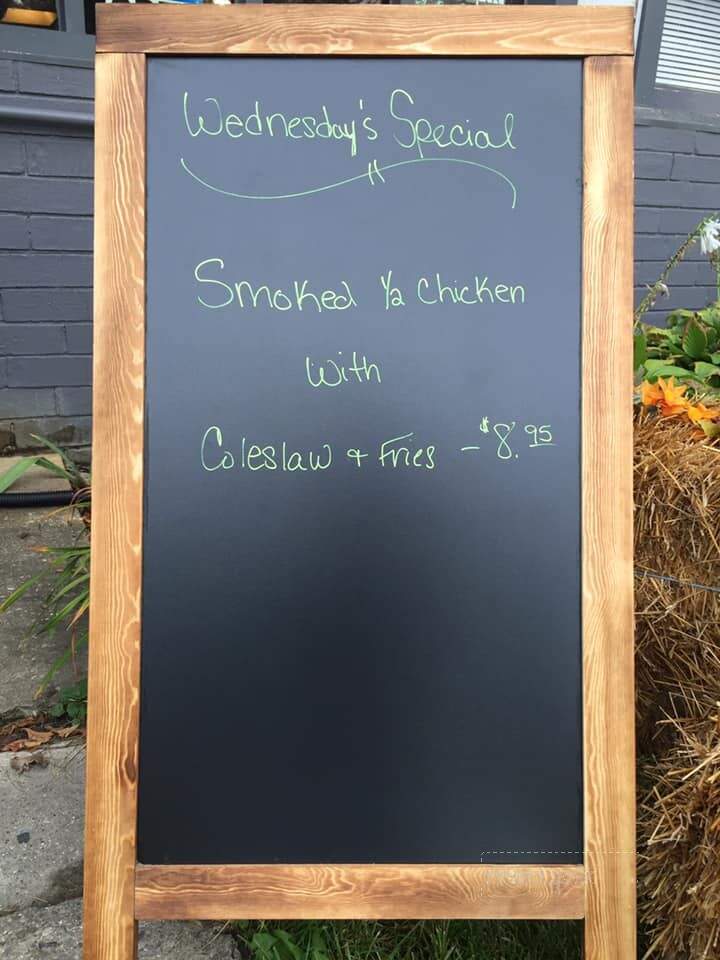 Wednesday's Special
Smoked 1/2 Chicken
With
Coleslaw & Fries - $8.95